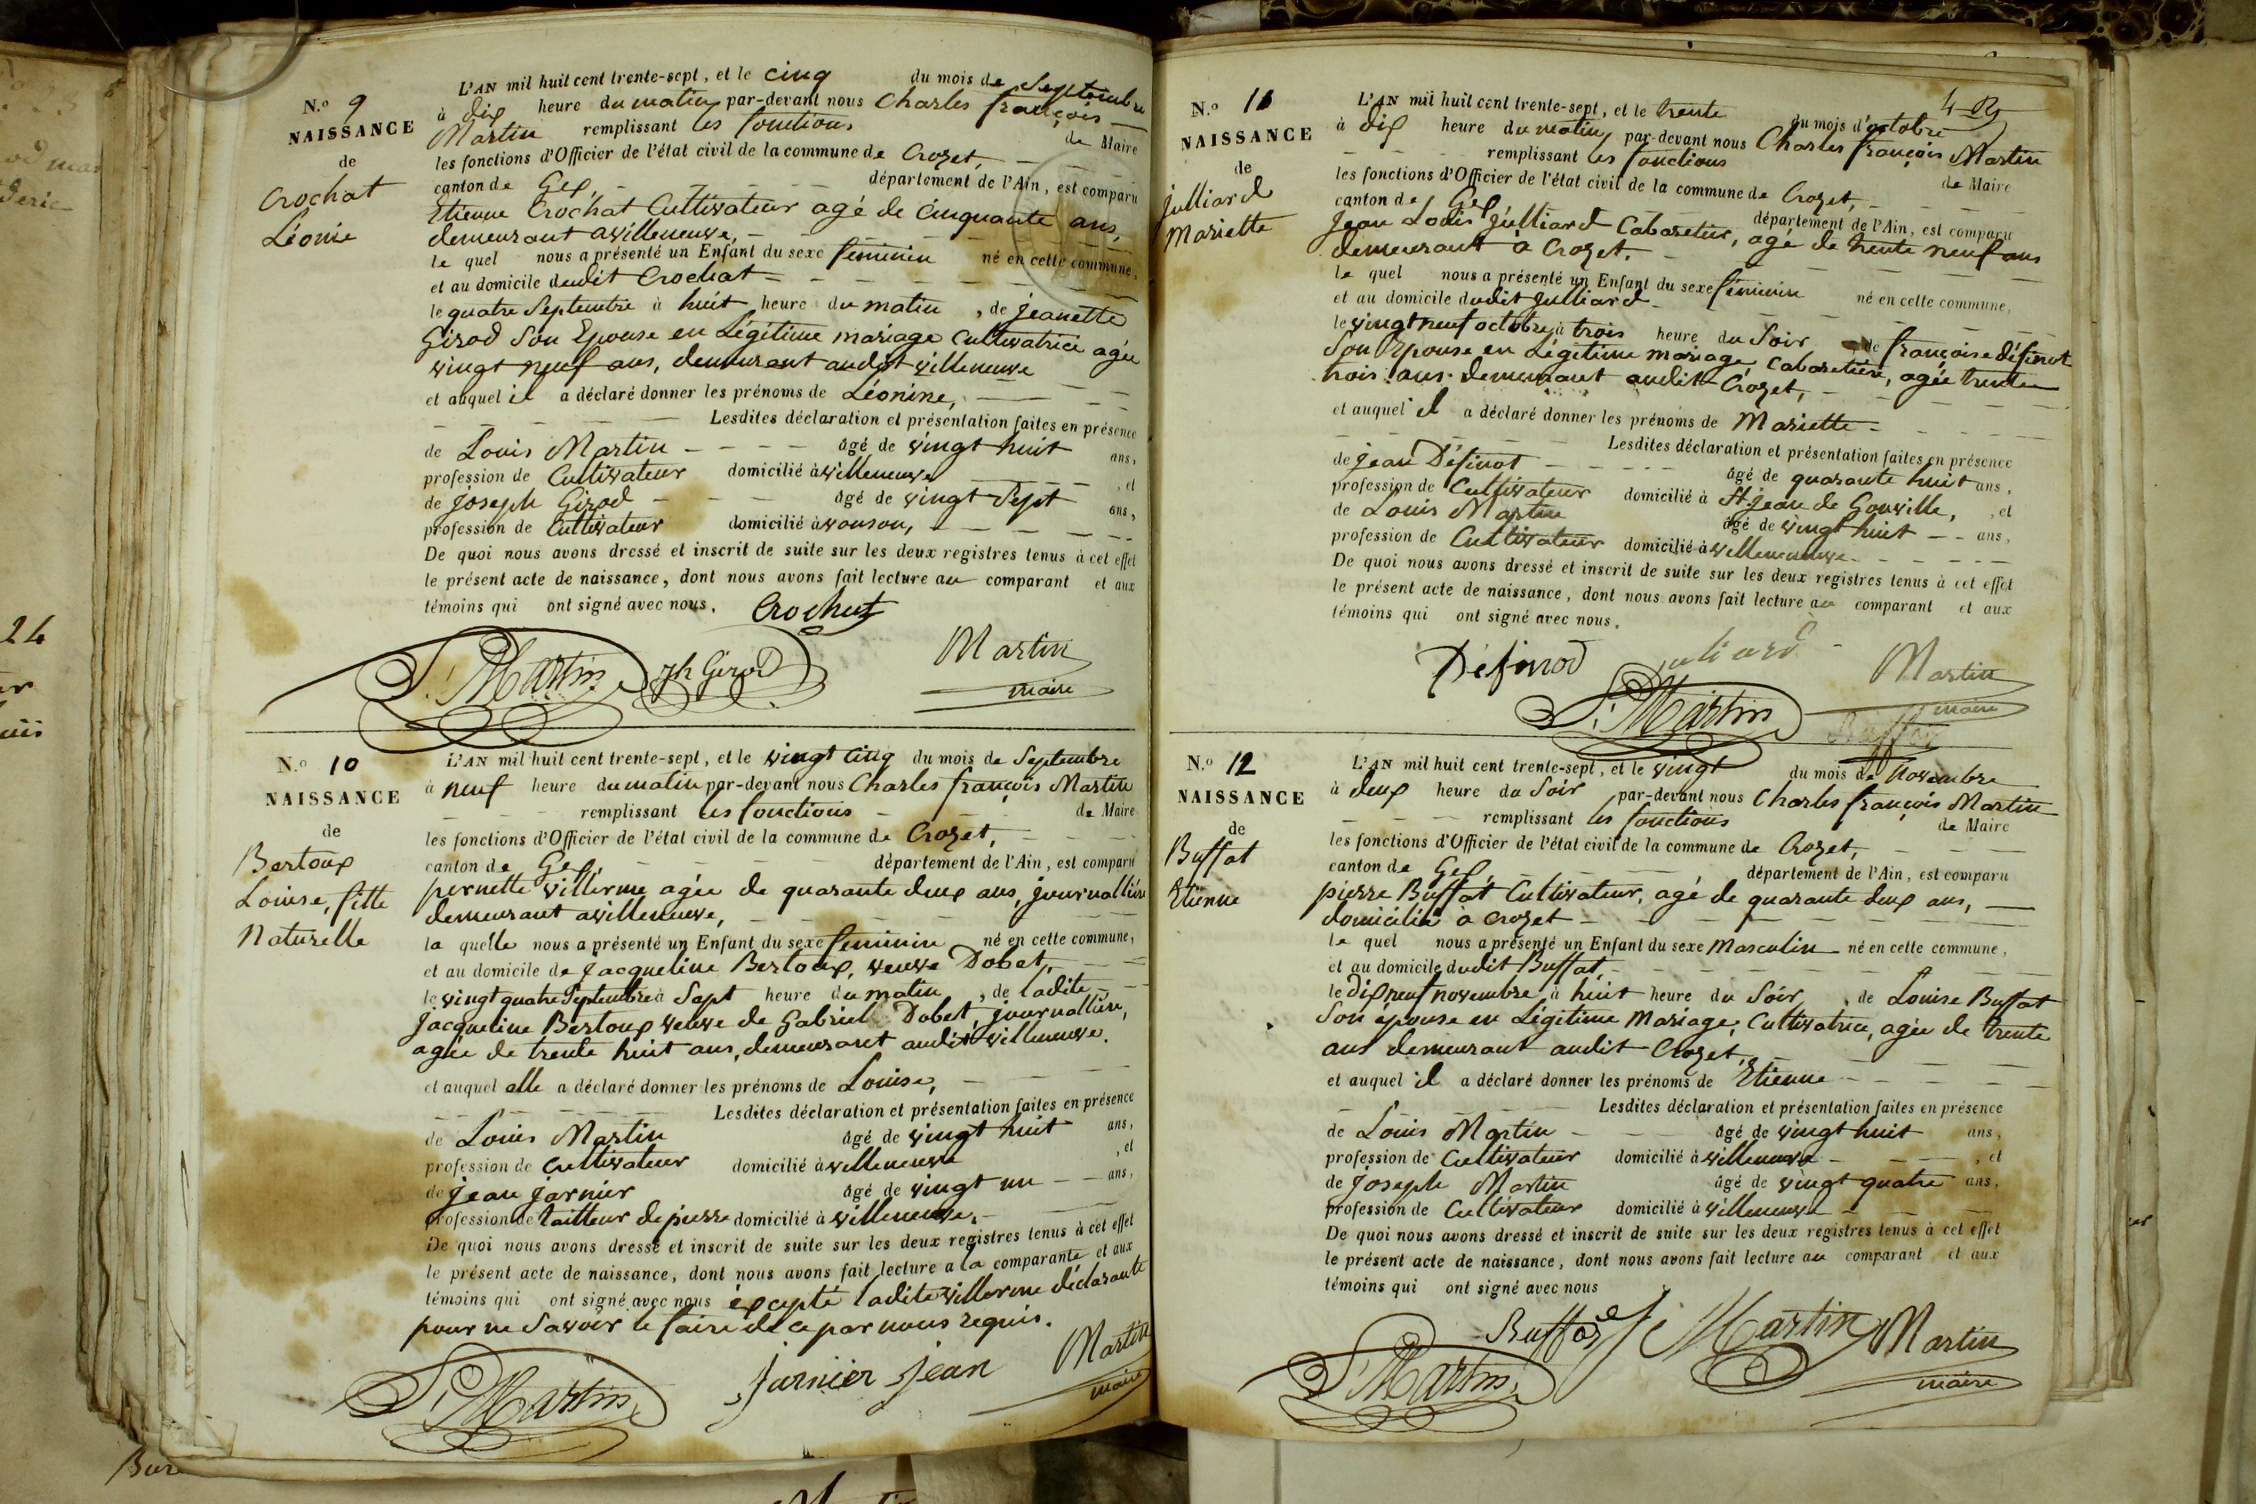 N.º 9
NAISSANCE
de
Crochat
Léonie
L'AN mil huit cent trente-sept, et le cinq du mois de Septembre
à dix heure du matin par-devant nous Charles françois
Martin remplissant les fonctions de Maire
les fonctions d'Officier de l'état civil de la commune de Crozet,
canton de Gex, département de l'Ain, est comparu
Etienne Crochat Cultivateur agé de Cinquante ans,
demeurant avilleneuve,
le quel nous a présenté un Enfant du sexe féminin né en cette commune,
et au domicile dudit Crochat
le quatre Septembre à huit heure du matin, de jeanette
Girod Son Epouse en Légitime mariage Cultivatrice agée
vingt neuf ans, demeurant audit villeneuve
et auquel il a déclaré donner les prénoms de Léonine,
Lesdites déclaration et présentation faites en présence
de Louis Martin âgé de vingt huit ans,
profession de Cultivateur domicilié à villeneuve, et
de joseph Girod âgé de vingt Sept ans,
profession de Cultivateur domicilié à vouson,
De quoi nous avons dressé et inscrit de suite sur les deux registres tenus à cet effet
le présent acte de naissance, dont nous avons fait lecture au comparant et aux
témoins qui ont signé avec nous. Crochat
L. Martin jh Girod Martin
maire
N.º 10
NAISSANCE
de
Bertoux
Louise, fille
Naturelle
L'AN mil huit cent trente-sept, et le vingt cinq du mois de Septembre
à neuf heure du matin par-devant nous Charles françois Martin
remplissant les fonctions de Maire
les fonctions d'Officier de l'état civil de la commune de Crozet,
canton de Gex, département de l'Ain, est comparu
pernette villerme agée de quarante deux ans, journallière
demeurant avilleneuve,
la quelle nous a présenté un Enfant du sexe féminin né en cette commune,
et au domicile de jacqueline Bertoux, veuve Dobet,
le vingt quatre Septembre à Sept heure du matin, de ladite
jacqueline Bertoux veuve de Gabriel Dobet, journallière,
agée de trente huit ans, demeurant audit villeneuve.
et auquel elle a déclaré donner les prénoms de Louise,
Lesdites déclaration et présentation faites en présence
de Louis Martin âgé de vingt huit ans,
profession de Cultivateur domicilié à villeneuve, et
de jean jarnier âgé de vingt un ans,
profession de tailleur de pierre domicilié à villeneuve,
De quoi nous avons dressé et inscrit de suite sur les deux registres tenus à cet effet
le présent acte de naissance, dont nous avons fait lecture a la comparante et aux
témoins qui ont signé avec nous éxcepté ladite villerme déclarante
pour ne Savoir le faire de ce par nous requis.
L. Martin jarnier jean Martin
maire
N.º 11
NAISSANCE
de
julliard
Mariette
L'AN mil huit cent trente-sept, et le trente du mois d'octobre
à dix heure du matin par-devant nous Charles françois Martin
remplissant les fonctions de Maire
les fonctions d'Officier de l'état civil de la commune de Crozet,
canton de Gex, département de l'Ain, est comparu
jean Louis julliard Cabaretier, agé de trente neuf ans
demeurant à Crozet.
le quel nous a présenté un Enfant du sexe féminin né en cette commune,
et au domicile dudit julliard
le vingt neuf octobre, à trois heure du Soir de françoise Définot
Son Epouse en Légitime mariage Cabaretière, agée trente
trois ans demeurant audit Crozet,
et auquel il a déclaré donner les prénoms de Mariette
Lesdites déclaration et présentation faites en présence
de jean Définot âgé de quarante huit ans,
profession de Cultivateur domicilié à St. jean de Gonville, et
de Louis Martin âgé de vingt huit ans,
profession de Cultivateur domicilié à villeneuve
De quoi nous avons dressé et inscrit de suite sur les deux registres tenus à cet effet
le présent acte de naissance, dont nous avons fait lecture au comparant et aux
témoins qui ont signé avec nous.
Définod Martin
L. Martin maire
N.º 12
NAISSANCE
de
Buffat
Etienne
L'AN mil huit cent trente-sept, et le vingt du mois de Novembre
à deux heure du Soir par-devant nous Charles françois Martin
remplissant les fonctions de Maire
les fonctions d'Officier de l'état civil de la commune de Crozet,
canton de Gex, département de l'Ain, est comparu
pierre Buffat Cultivateur, agé de quarante deux ans,
domicilié à Crozet
le quel nous a présenté un Enfant du sexe Masculin né en cette commune,
et au domicile dudit Buffat,
le Dix neuf novembre à huit heure du Soir, de Louise Buffat
Son épouse en Légitime Mariage, Cultivatrice, agée de trente
ans demeurant audit Crozet,
et auquel il a déclaré donner les prénoms de Etienne
Lesdites déclaration et présentation faites en présence
de Louis Martin âgé de vingt huit ans,
profession de Cultivateur domicilié à villeneuve, et
de joseph Martin âgé de vingt quatre ans,
profession de Cultivateur domicilié à villeneuve
De quoi nous avons dressé et inscrit de suite sur les deux registres tenus à cet effet
le présent acte de naissance, dont nous avons fait lecture au comparant et aux
témoins qui ont signé avec nous
Martin Martin
L. Martin maire